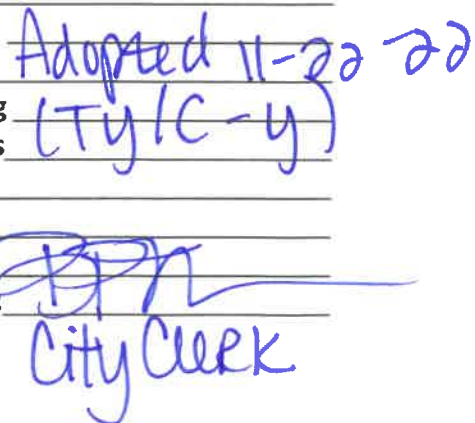 Adopted 11-22-22
g (Ty/C-y)
s
City Clerk